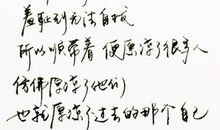 羞耻到无法自拔
所以顺带着 便原凉了很多人
仿佛原凉了他们
也就原凉了过去的那个自己